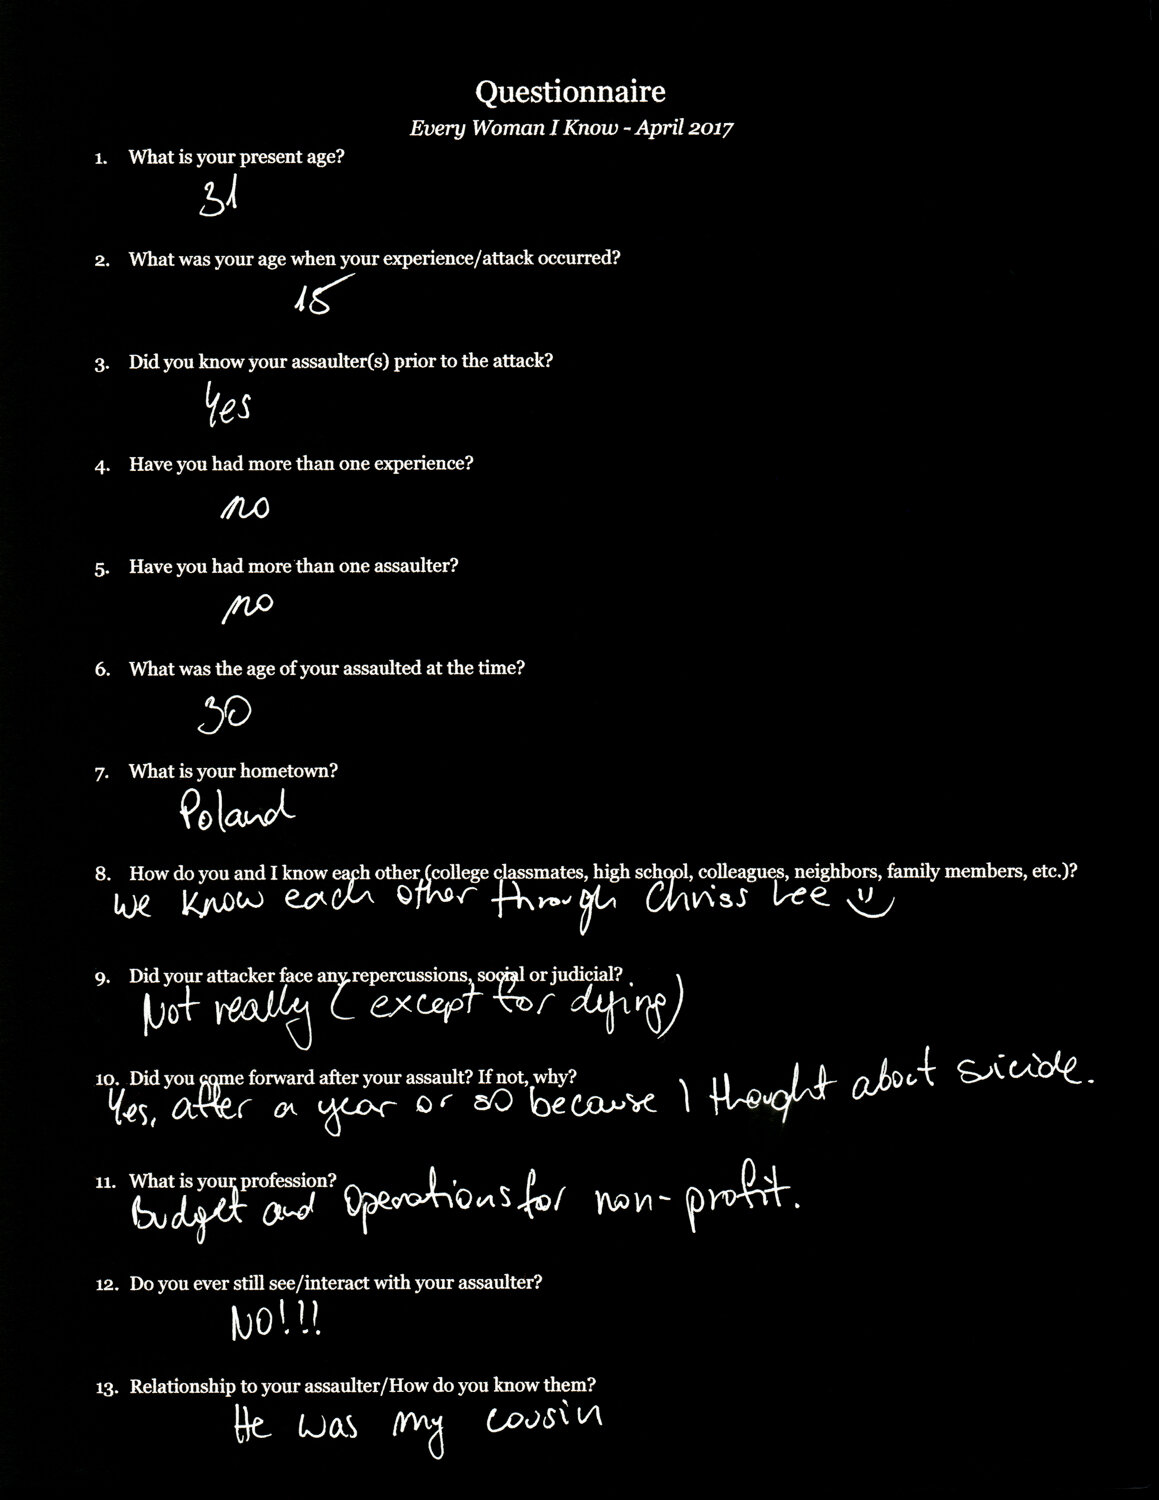 Questionnaire
Every Woman I Know - April 2017
1. What is your present age?
31
2. What was your age when your experience/attack occurred?
15
3. Did you know your assaulter(s) prior to the attack?
Yes
4. Have you had more than one experience?
no
5. Have you had more than one assaulter?
no
6. What was the age of your assaulted at the time?
30
7. What is your hometown?
Poland
8. How do you and I know each other (college classmates, high school, colleagues, neighbors, family members, etc.)?
We know each other through Chriss Lee
9. Did your attacker face any repercussions, social or judicial?
Not really (except for dying)
10. Did you come forward after your assault? If not, why?
Yes, after a year or so because I thought about suicide.
11. What is your profession?
Budget and Operations for non-profit.
12. Do you ever still see/interact with your assaulter?
NO!!!
13. Relationship to your assaulter/How do you know them?
He was my cousin